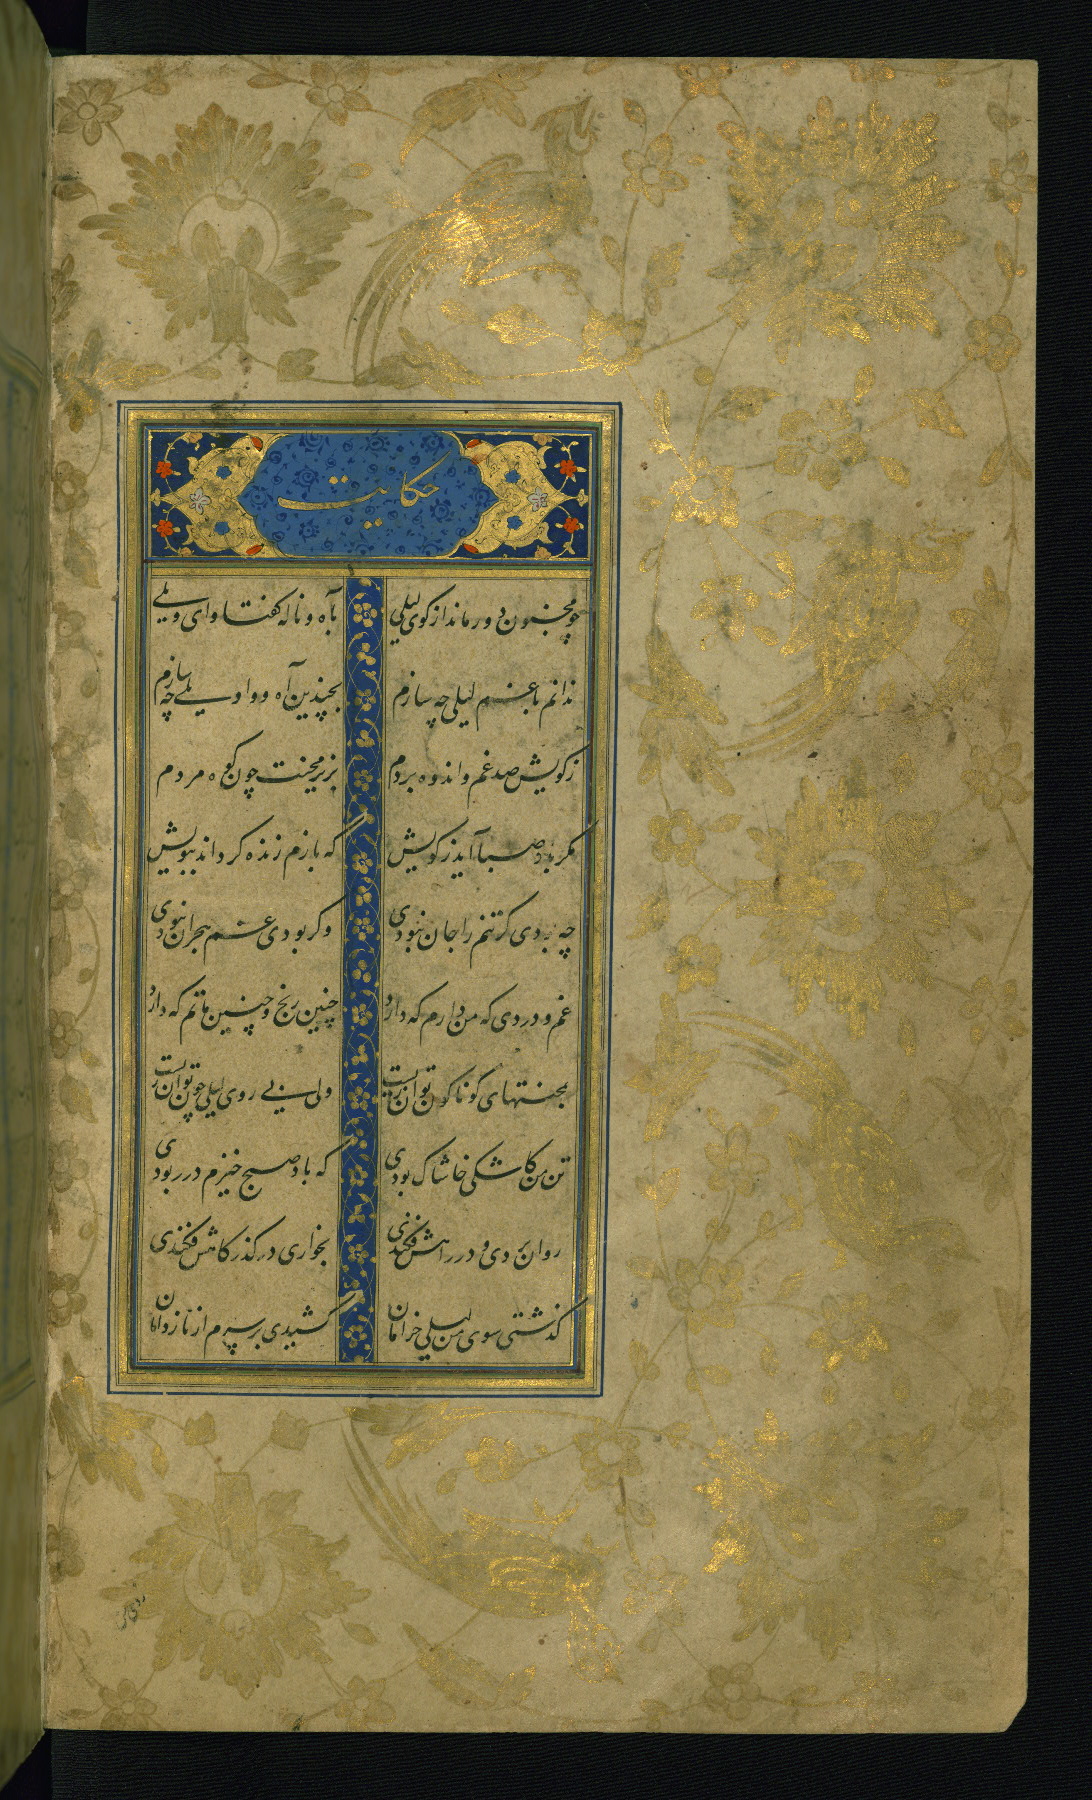 حکایت
چو مجنون دور ماند از کوی لیلی
بآه و ناله گفتا وای ویلی
ندانم با غم لیلی چه سازم
بچندین آه و واویلی چه سازم
ز کویش صد غم و اندوه بردم
بزیر محنت چون کوه مردم
مکر باد صبا آید ز کویش
که بازم زنده کرداند ببویش
چه بودی کر تنم را جان نبودی
وکر بودی غم هجران نبودی
غم و دردی که من دارم که دارد
چنین رنج و چنین ماتم که دارد
بمحنتهای کوناکون توان زیست
ولی بی روی لیلی چون توان زیست
تن من کاشکی خاشاک بودی
که باد صبح خیزم در ربودی
روان بردی و در راهش فکندی
بخواری در کذرکاهش فکندی
کذشتی سوی من لیلی خرامان
کشیدی بر سرم از ناز دامان